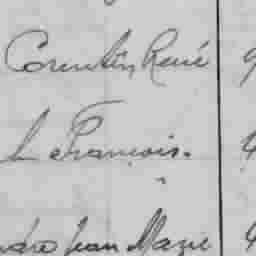 Corentin René
h François.
ndré Jean Marie